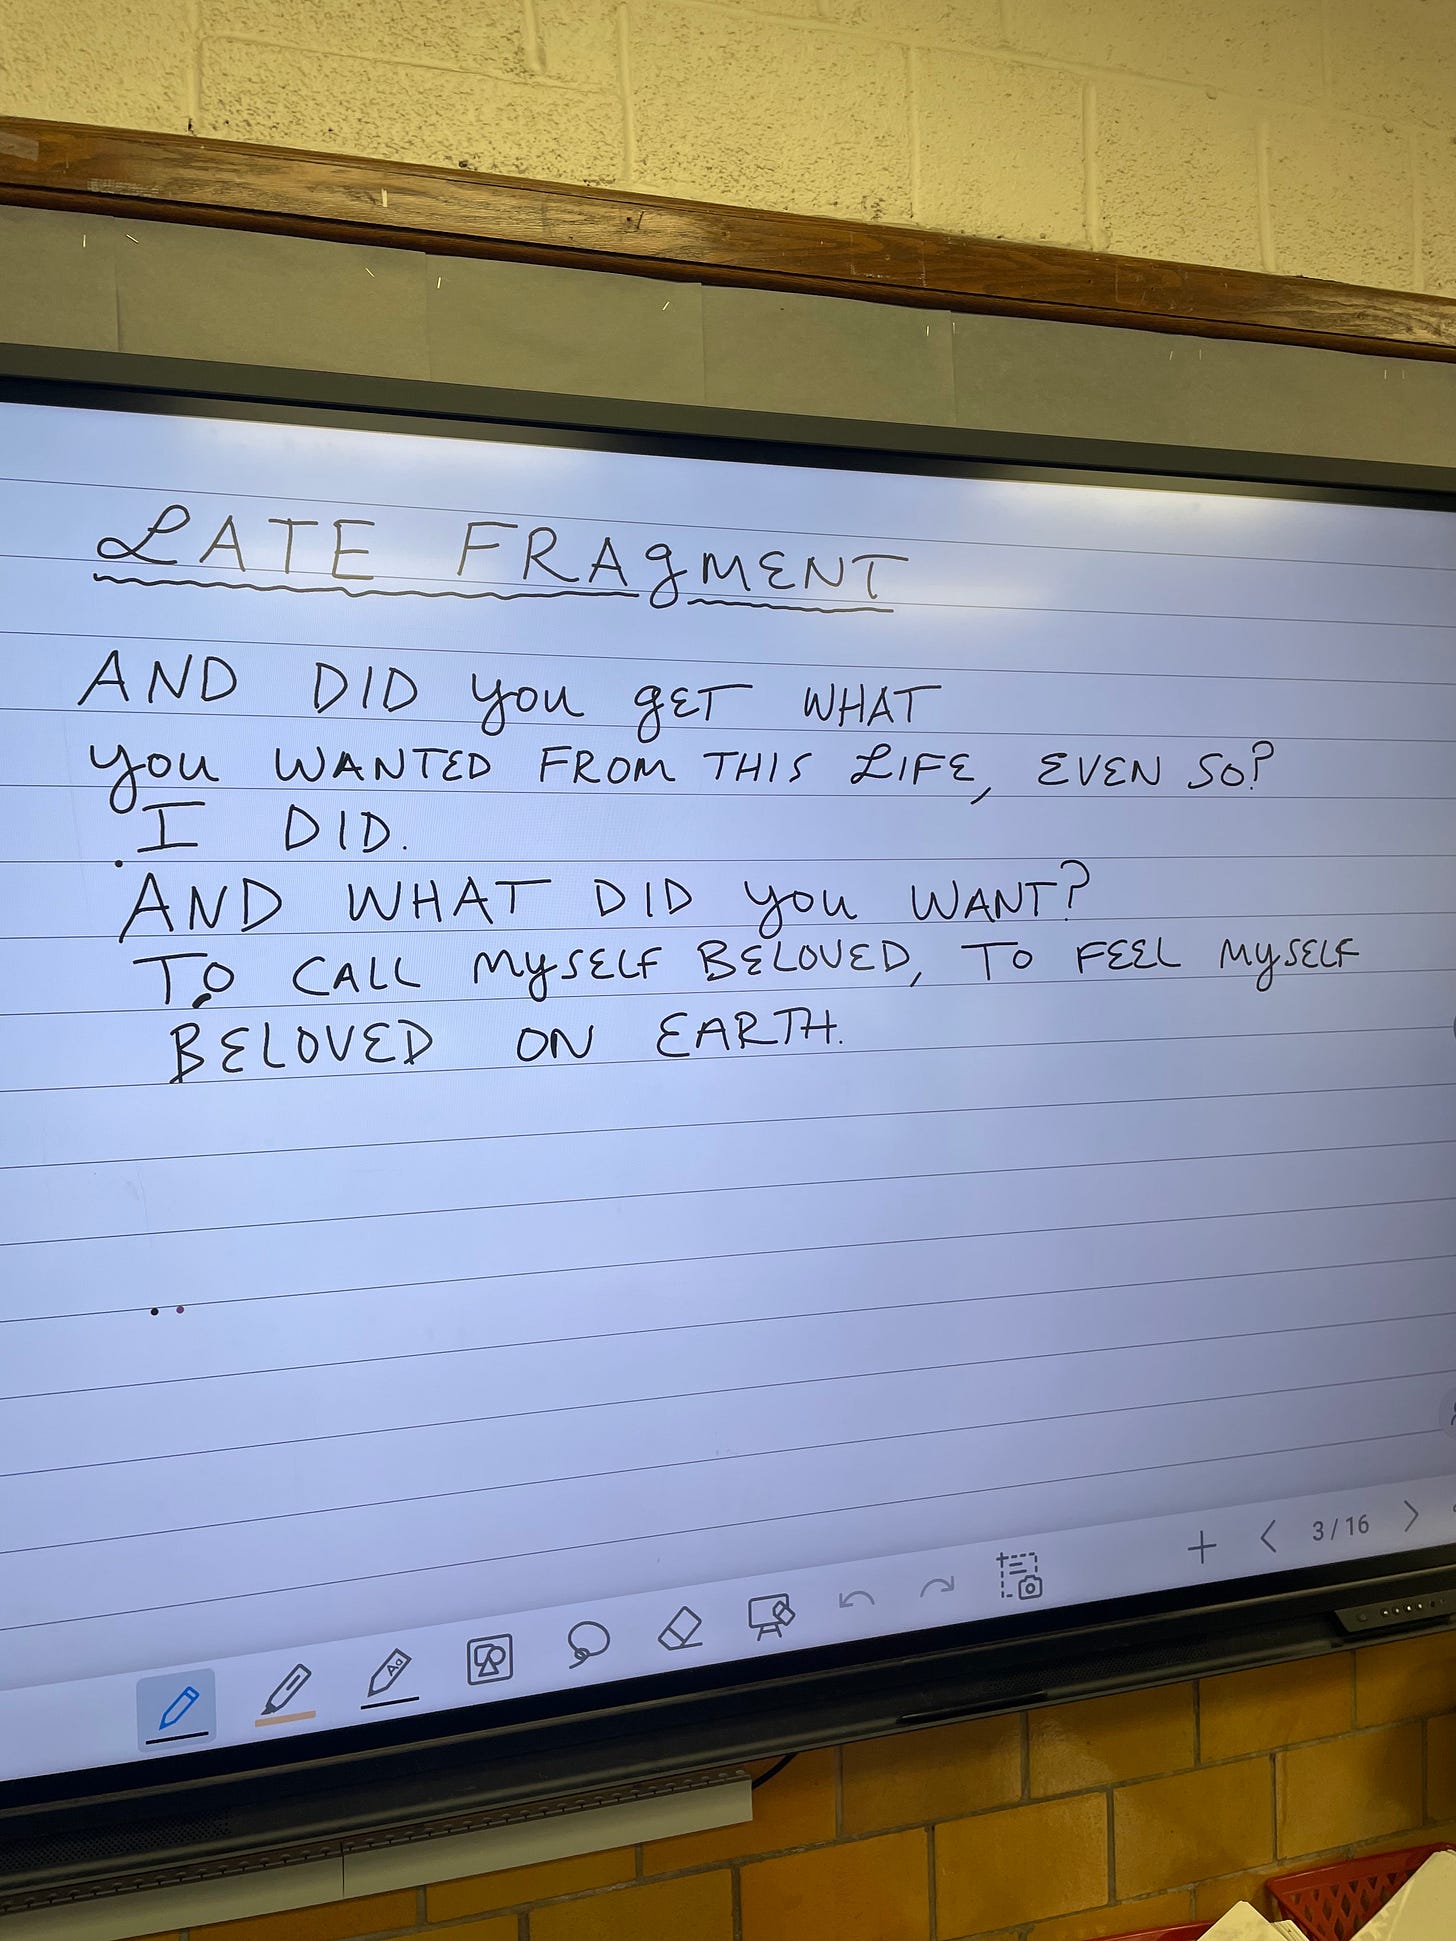 LATE FRAgMENT
AND DID you gET WHAT
you WANTED FROM THIS LIFE, EVEN SO?
I DID.
AND WHAT DID you WANT?
TO CALL MySELF BELOVED, TO FEEL MySELF
BELOVED ON EARTH.
3/16
Aa